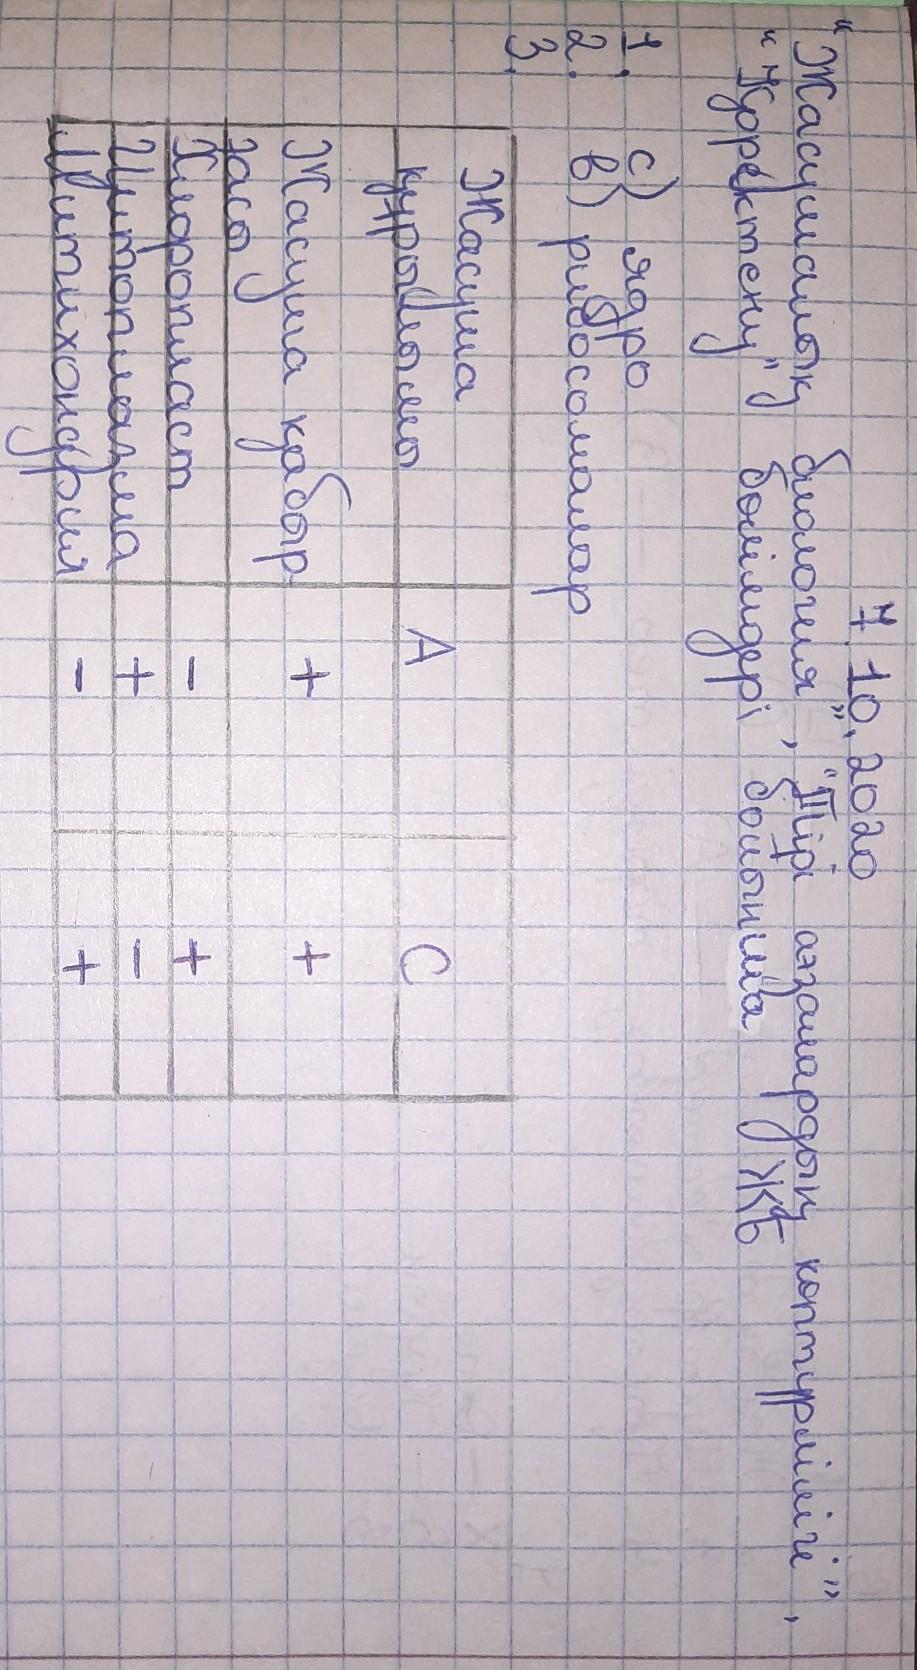 7.10.2020
"Жасушалық биология", "Тірі ағзалардың көптүрлілігі",
"Қоректену" бөлімдері бойынша ЖБ
1. с) ядро
2. в) рибосомалар
3.
Жасуша құрылымы A C
Жасуша қабырғасы + +
Хлоропласт - +
Цитоплазма + -
Митихондрия - +